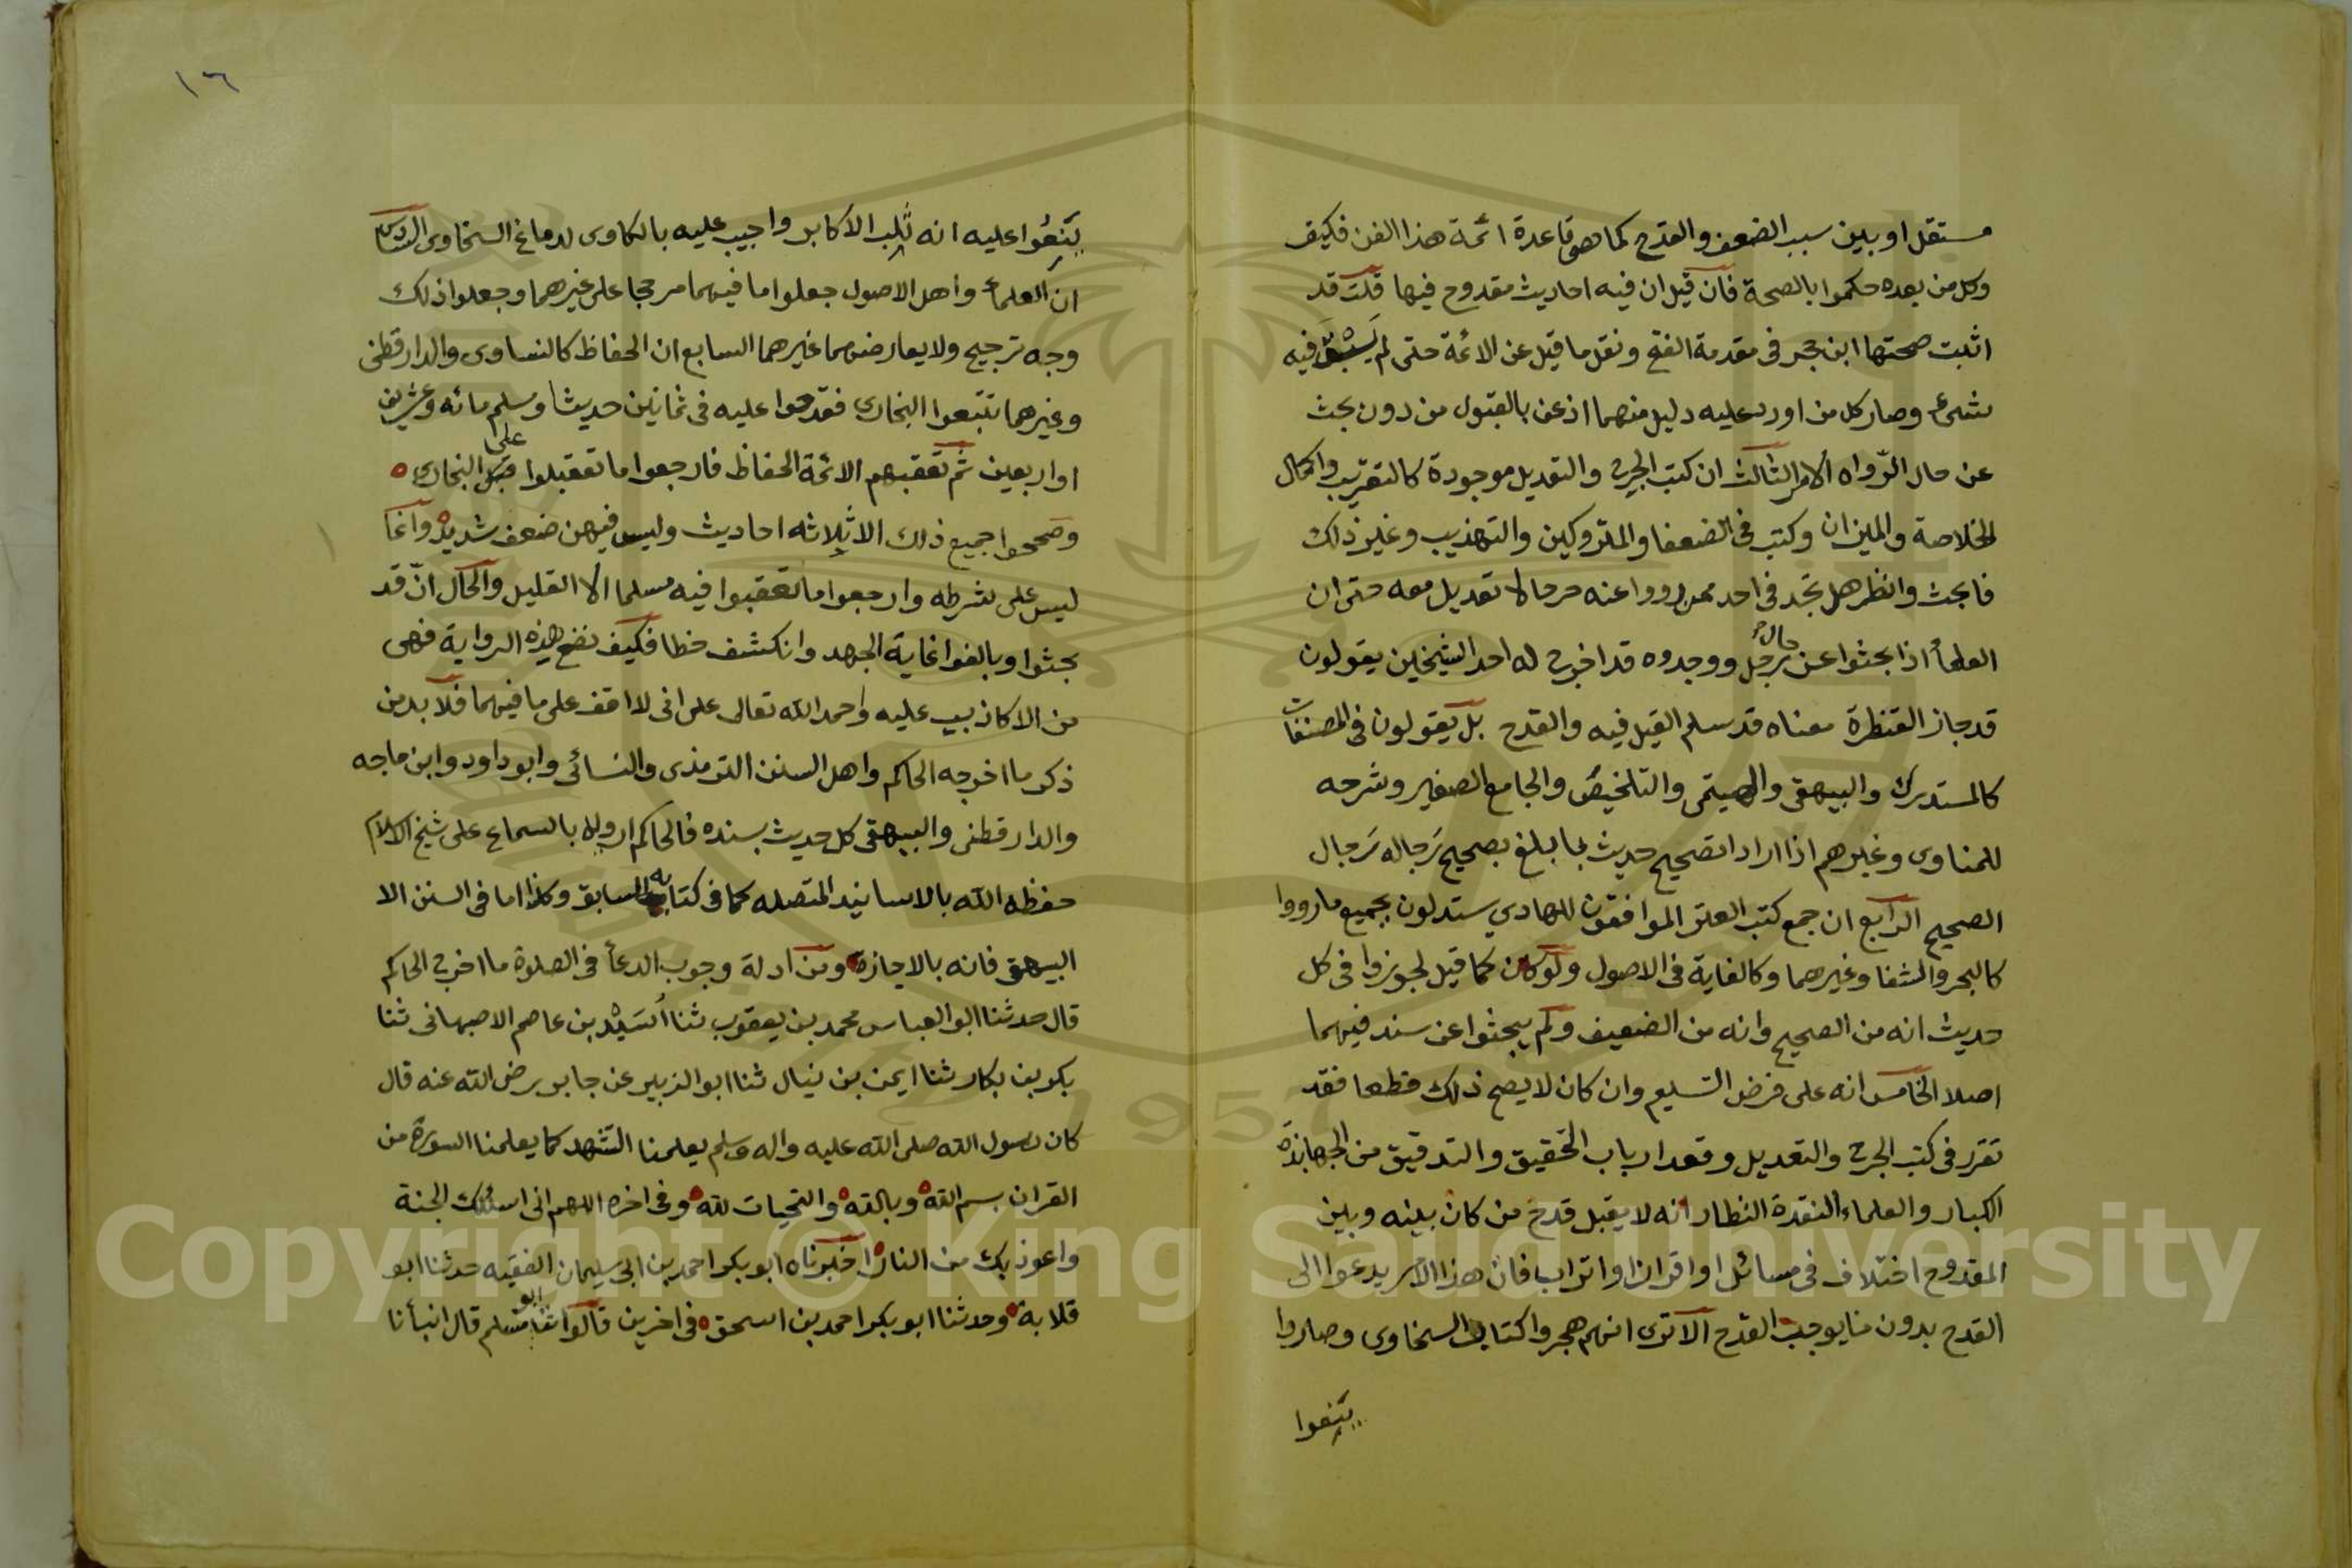 مستقل او بين سبب الضعف والقدح كما هو قاعدة ائمة هذا الفن فكيف
وكل من بعده حكموا بالصحة فان قيل ان فيه احاديث مقدوح فيها قلت قد
اثبت صحتها ابن حجر فى مقدمة الفتح ونقل ما قيل عن الائمة حتى لم يبق فيه
شىء وصار كل من اورد عليه دليل منهما اذعن بالقبول من دون بحث
عن حال الرّواه الامر الثالث ان كتب الجرح والتعديل موجودة كالتقريب واكمال
الخلاصة والميزان وكتب فى الضعفا والمتروكين والتهذيب وغير ذلك
فابحث وانظر هل تجد فى احد ممن رووا عنه جرحا لا تعديل معه حتى ان
العلمأ اذا بحثوا عن حال رجل ووجدوه قد اخرج له احد الشيخين يقولون
قد جاز القنطرة معناه قد سلم القيل فيه والقدح بل يقولون فى المصنفات
كالمستدرك والبيهقى والهيتمى والتلخيص والجامع الصغير وشرحه
للمناوى وغيرهم اذا ارادا تصحيح حديث بما بلغ بصحيح رجاله رجال
الصحيح الرابع ان جمع كتب العتر الموافقون للهادي ستدلون بجميع ما رووا
كالبحر والشفا وغيرهما وكالغاية فى الاصول ولو كان كما قيل لجوزوا فى كل
حديث انه من الصحيح وانه من الضعيف ولم يبحثوا عن سند فيهما
اصلا الخامس انه على فرض التسليم وان كان لا يصح ذلك قطعا فقد
تقرر فى كتب الجرح والتعديل وقعد ارباب التحقيق والتدقيق من الجهابذة
الكبار والعلماء النقدة النظار انه لا يقبل قدح من كان بينه وبين
المقدوح اختلاف فى مسائل او اقران او اتراب فان هذا الامر يدعوا الى
القدح بدون ما يوجب القدح الا ترى انهم هجروا كتاب السخاوى وصاروا
ينعوا
١٦
ينعُوا عليه انه ثلب الاكابر واجيب عليه بالكاوى لدماغ السخاوى السادس
ان العلمأ واهل الاصول جعلوا ما فيهما مرجحا على غيرهما وجعلوا ذلك
وجه ترجيح ولا يعارضهما غيرهما السابع ان الحفاظ كالنساوى والدارقطنى
وغيرهما تتبعوا البخارى فقدحوا عليه فى ثمانين حديثا ومسلم مائه وعشرين
او اربعين ثم تعقبهم الائمة الحفاظ فارجعوا ما تعقبلوا على البخارى
وصححوا جميع ذلك الا ثلاثه احاديث وليس فيهن ضعف شديد وانما
ليس على شرطه وارجعوا ما تعقبوا فيه مسلما الا القليل والحال انّ قد
بحثوا وبالغوا غاية الجهد وانكشف خطا فكيف نضع هذه الرواية فهى
من الاكاذيب عليه واحمد الله تعالى على انى لا اقف على ما فيهما فلا بد من
ذكر ما اخرجه الحاكم واهل السنن الترمذى والنسائى وابو داود وابن ماجه
والدارقطنى والبيهقى كل حديث بسنده فالحاكم ارويه بالسماع على شيخ الاسلام
حفظه الله بالاسانيد المتصله كما فى كتابه السابق وكذا ما فى السنن الا
البيهقى فانه بالاجازة ومن ادلة وجوب الدعأ فى الصلوة ما اخرج الحاكم
قال حدثنا ابو العباس محمد بن يعقوب ثنا اُسَيْد بن عاصم الاصبهانى ثنا
بكر بن بكار ثنا ايمن بن نيال ثنا ابو الزبير عن جابر رضى الله عنه قال
كان رسول الله صلى الله عليه واله وسلم يعلمنا التشهد كما يعلمنا السورة من
القران بسم الله وبالله والتحيات لله وفى اخره اللهم انى اسئلك الجنة
واعوذ بك من النار اخبرناه ابو بكر احمد بن ابى سليمان الفقيه حدثنا ابو
قلابة وحدثنا ابو بكر احمد بن اسحق فى اخرين قالوا ثنا ابو مسلم قال انبأنا
Copyright © King Saud University
1957